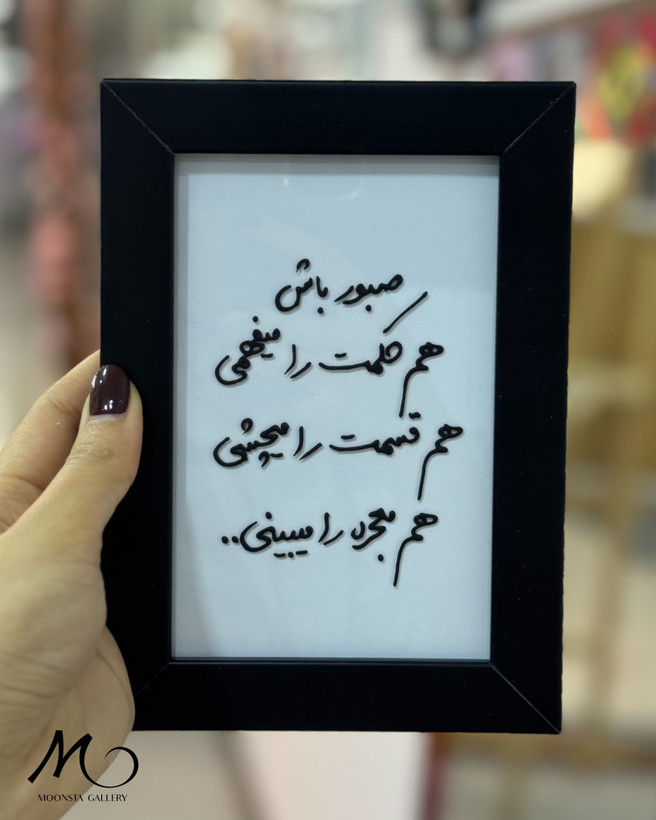 صبور باش
هم حکمت را میفهمی
هم قسمت را میچشی
هم معجزه را میبینی..
MOONSTA GALLERY